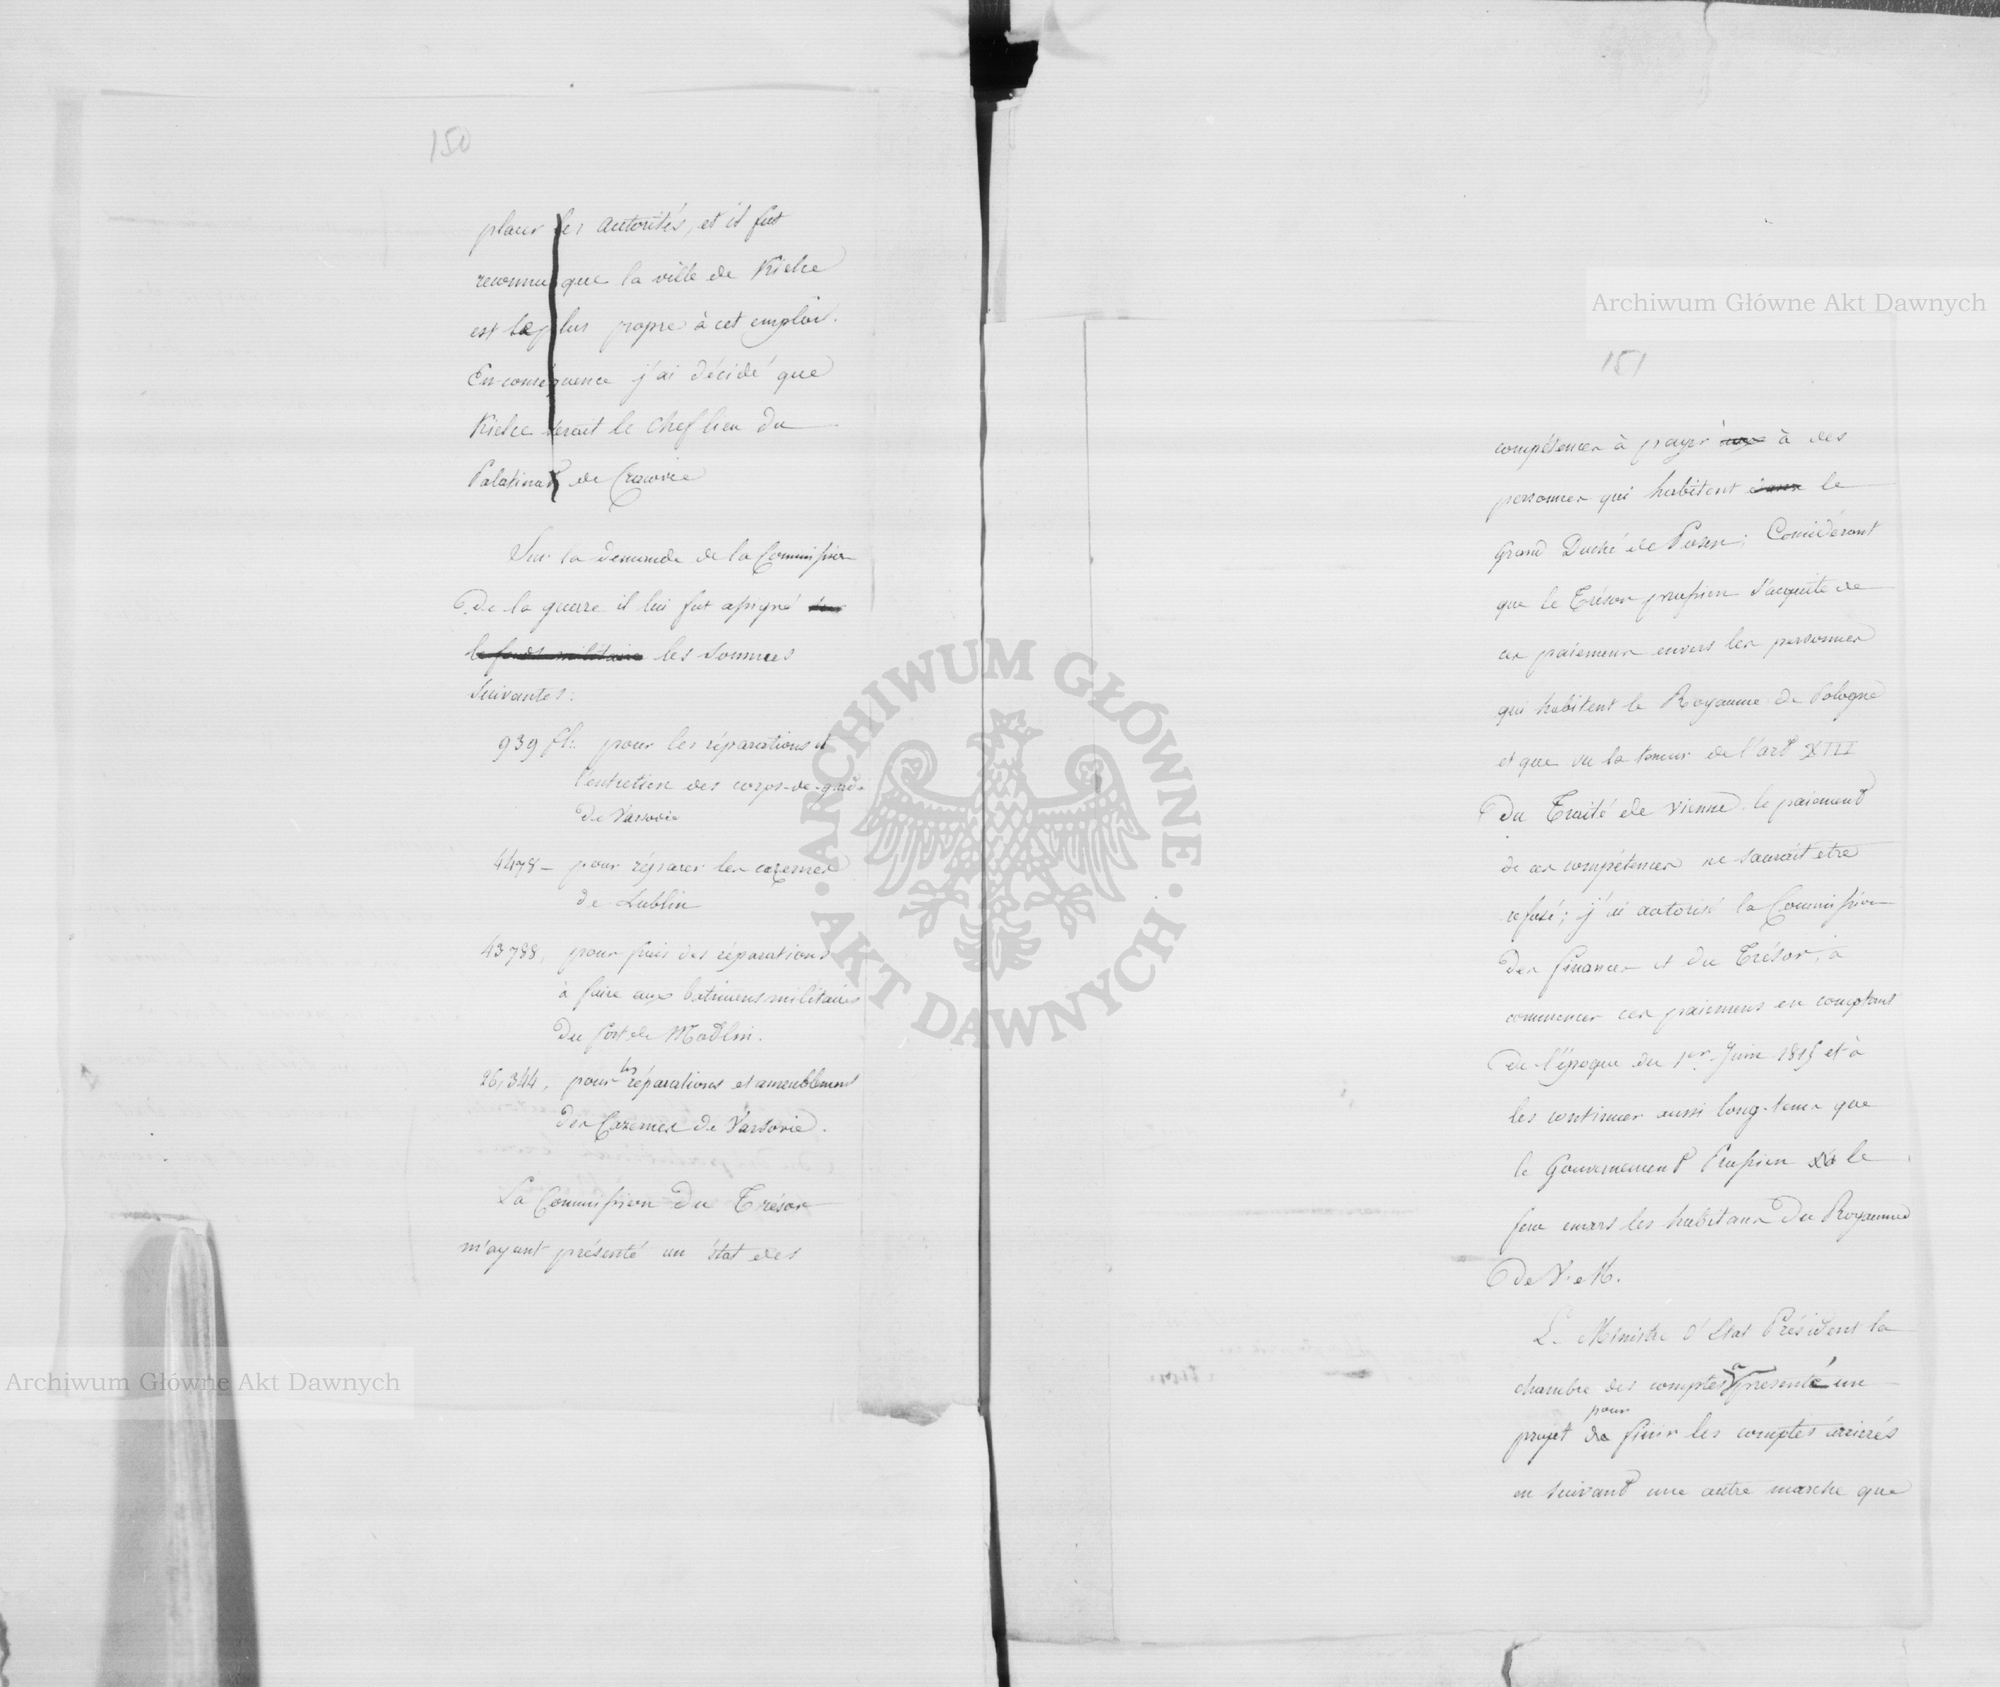 150
placer les autorités, et il fut
reconnu que la ville de Kielce
est la plus propre à cet emploi.
En conséquence j'ai décidé que
Kielce serait le chef lieu du
Palatinat de Cracovie
Sur la demande de la Commission
de la guerre il lui fut assigné sur
le fonds militaire les sommes
suivantes:
939 fl: pour les réparations et
l'entretien des corps-de-garde
de Varsovie
4478 – pour réparer les cazernes
de Lublin
43788, pour frais des réparations
à faire aux batimens militaires
du fort de Modlin.
les
26,344, pour réparations et ameublement
des Cazernes de Varsovie.
La Commission du Trésor
m'ayant présenté un état des
Archiwum Główne Akt Dawnych
ARCHIWUM GŁÓWNE
AKT DAWNYCH
Archiwum Główne Akt Dawnych
151
compétences à payer à des
personnes qui habitent dans le
Grand Duché de Posen; Considérant
que le Trésor prussien s'acquite de
ces paiemens envers les personnes
qui habitent le Royaume de Pologne
et que vu la teneur de l'art XIII
du Traité de Vienne le paiement
de ces compétences ne saurait etre
refusé; j'ai autorisé la Commission
des finances et du Trésor, à
commencer ces paiemens en comptant
de l'époque du 1er Juin 1815 et à
les continuer aussi long-tems que
le Gouvernement Prussien le
fera envers les habitans du Royaume
de V. M.
Le Ministre d'Etat Président la
a
chambre des comptes présenté un
pour
projet de finir les comptes arriérés
en suivant une autre marche que